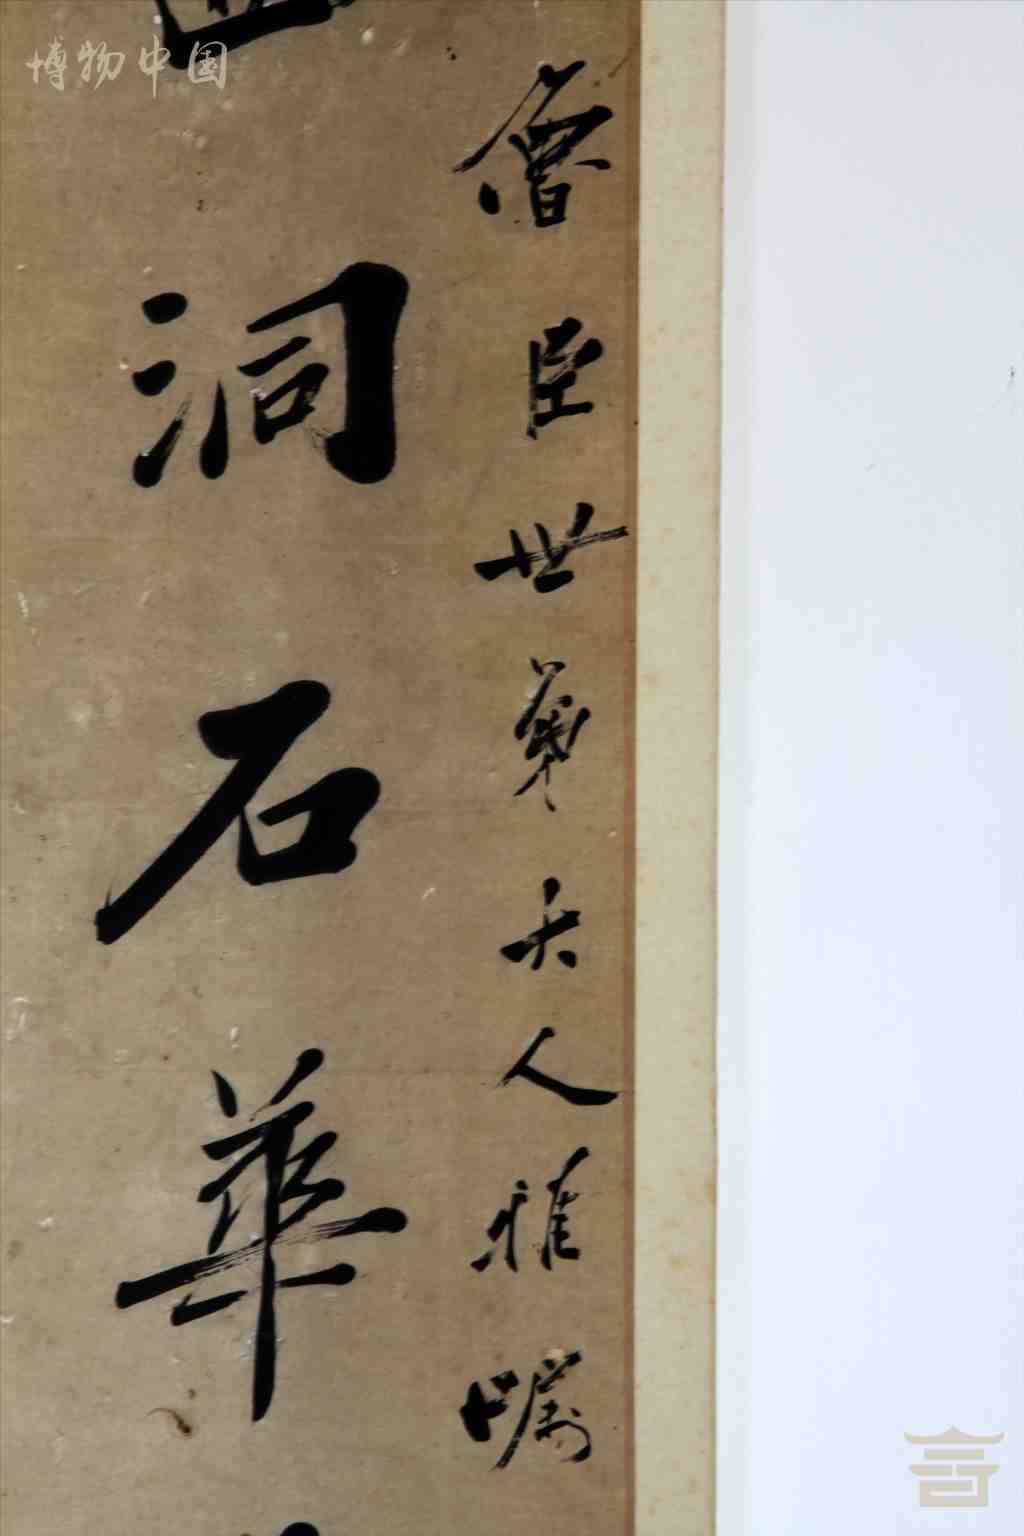 博物中国
會臣世弟大人雅囑
洞石華